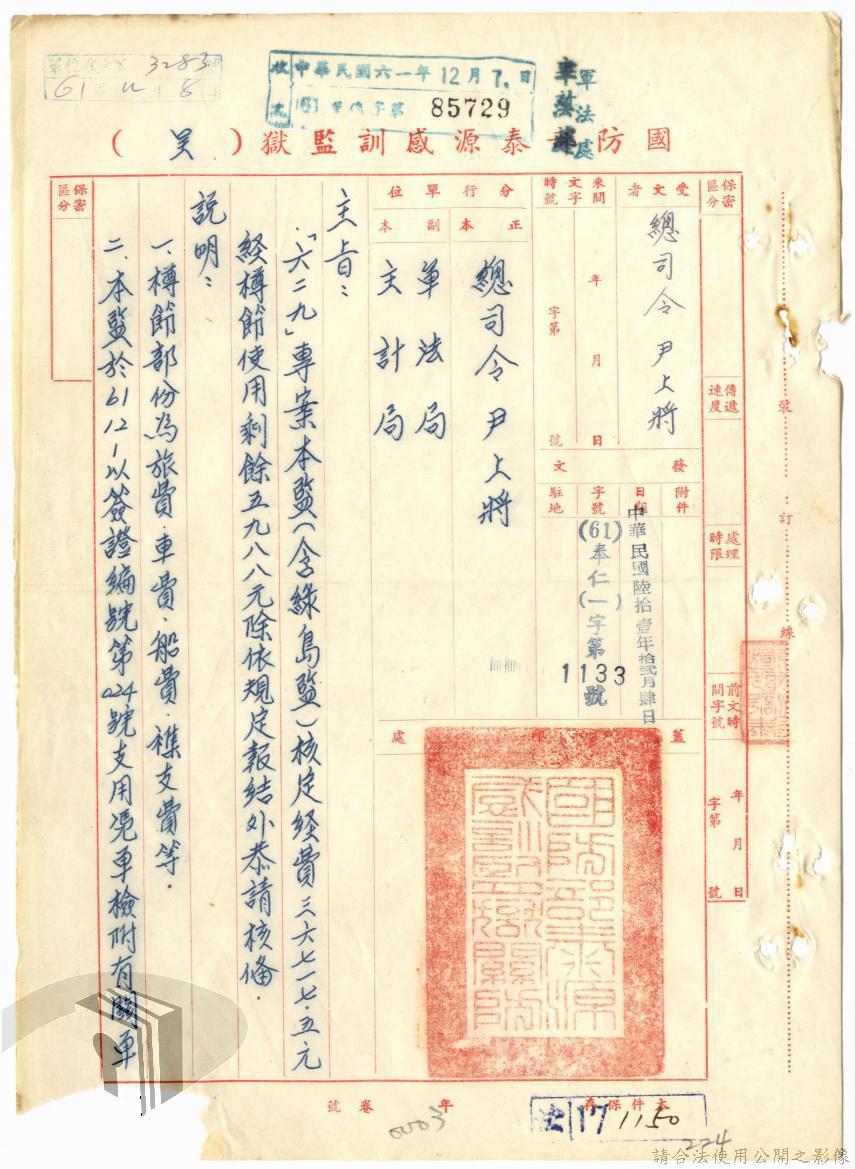 3283
61 年 12 月 8 日
收文
中華民國六一年12月7日
85729
軍法處
國防部泰源感訓監獄（呈）
保密區分
傳遞速度
處理時限
前文時間字號
年 月 日
字第 號
受文者
總司令尹上將
來文時間字號
年 月 日
字第 號
發文
附件
日期
中華民國陸拾壹年拾貳月肆日
字號
(61)奉仁(一)字第1133號
駐地
分行單位
正本
總司令尹上將
副本
軍法局
主計局
蓋印處
國防部泰源感訓監獄關防
主旨：
「六二九」專案本監（含綠島監）核定経費三六七一七.五元
経樽節使用剩餘五九八八元除依規定報結外恭請核備.
說明：
一、樽節部份為旅費.車費.船費.襍支費等.
二.本監於61 12 1以簽證編號第024號支用憑單檢附有關單
保密區分
裝訂線
本件保存 年
卷號
0003
法 17 1150
224
請合法使用公開之影像